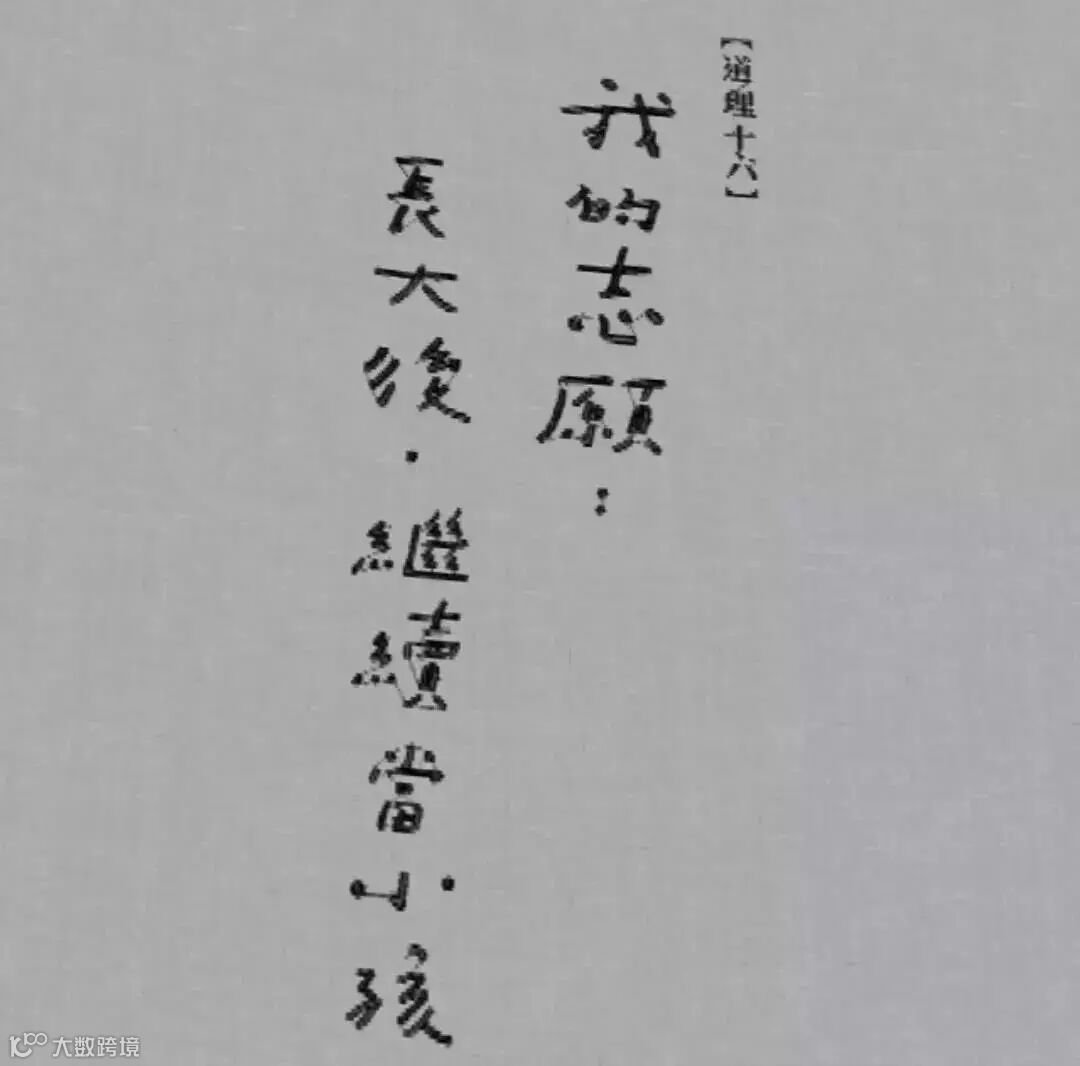 【道理十六】
我的志願：
長大後．繼續當小孩
大数跨境